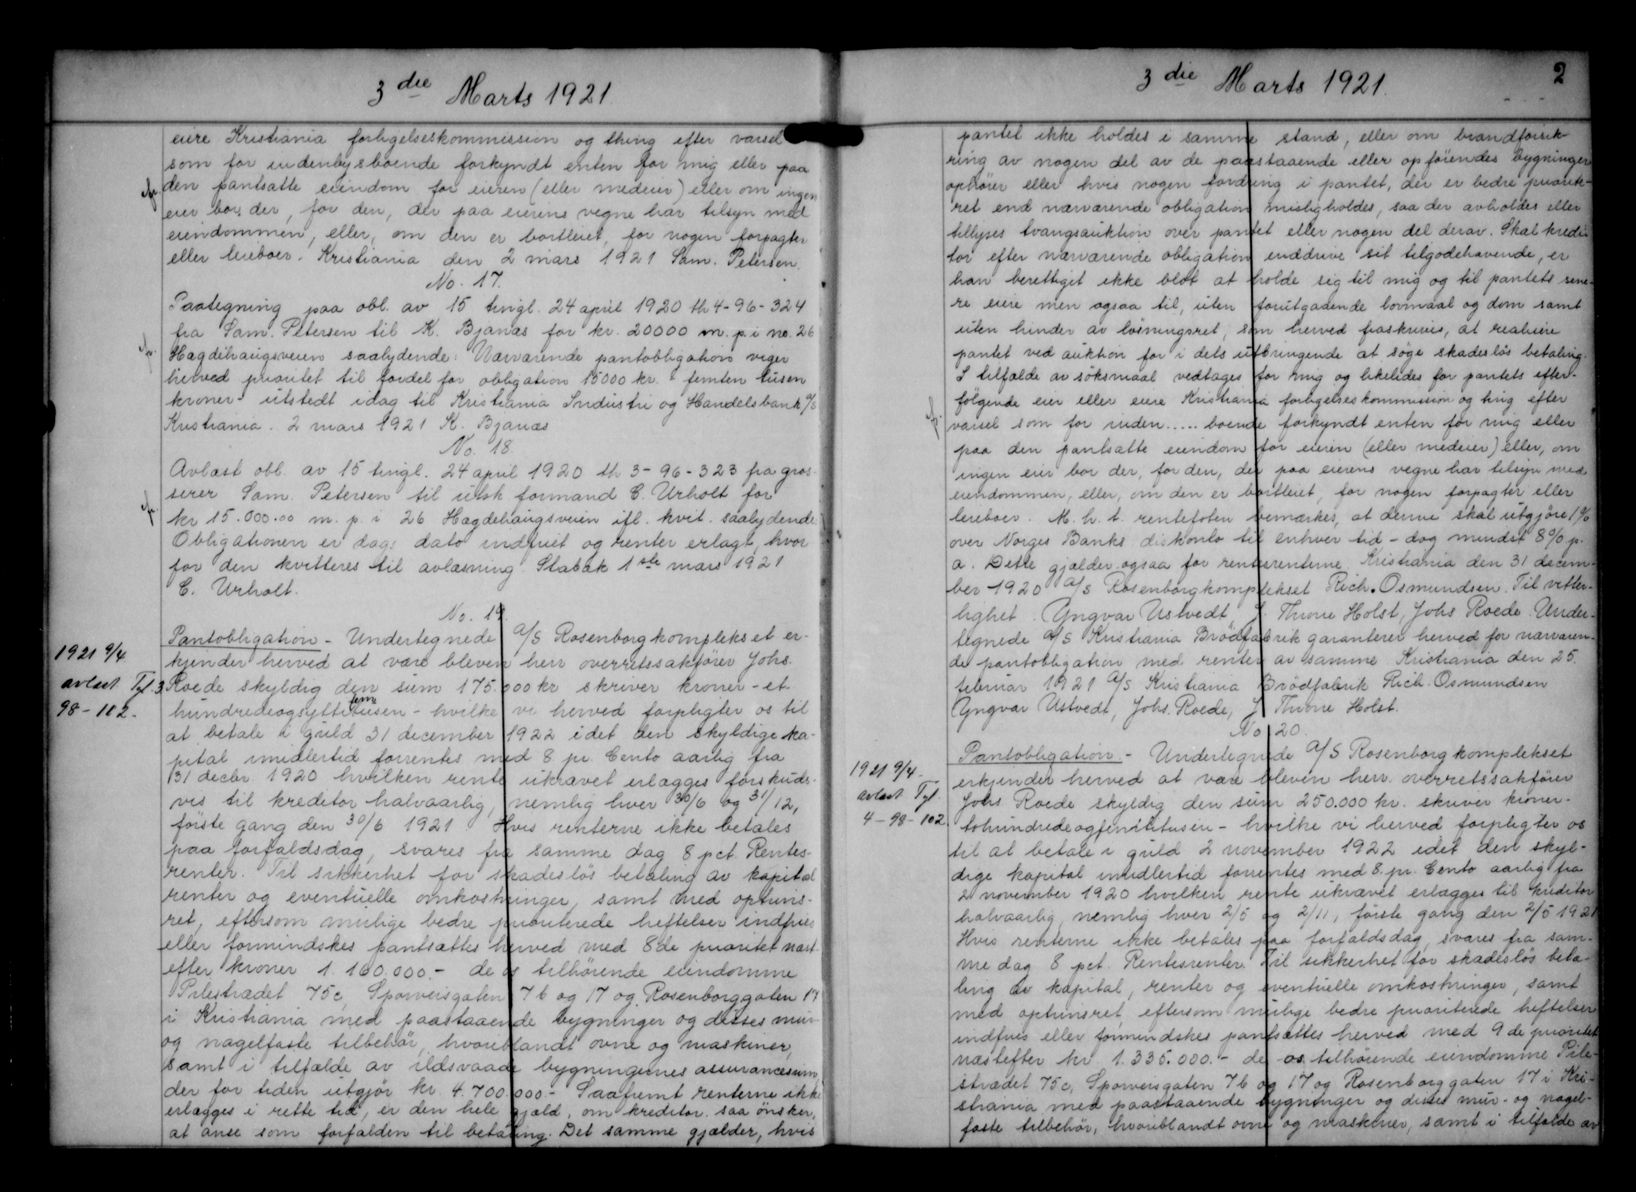 3die Marts 1921
eiere Kristiania forligelseskommission og thing efter varsel
som for indenbysboende forkyndt enten for mig eller paa
den pantsatte eiendom for eieren (eller medeier) eller om ingen
eier bor der, for den, der paa eierens vegne har tilsyn med
eiendommen, eller, om den er bortleiet, for nogen forpagter
eller leieboer. Kristiania den 2 mars 1921 Sam. Petersen.
No. 17.
Paategning paa obl. av 15 tingl. 24 april 1920 th 4-96-324
fra Sam. Petersen til K. Bjanæs for kr. 20000 m. p. i no. 26
Hagdehaugsveien saalydende: Nærværende pantobligation viger
herved prioritet til fordel for obligation 15000 kr. femten tusen
kroner- utstedt idag til Kristiania Industri og Handelsbank a/s
Kristiania. 2 mars 1921 K. Bjanæs
No. 18
Avlæst obl. av 15 tingl. 24 april 1920 th 3-96-323 fra gros-
serer Sam. Petersen til formand C. Urholt for
kr 15.000.00 m. p. i 26 Hagdehaugsveien ifl. kvit. saalydende
Obligationen er dags dato indfriet og renter erlagt hvor
for den kvitteres til avlæsning. Stabæk 1ste mars 1921
C. Urholt.
No. 19
Pantobligation - Undertegnede A/S Rosenborgkomplekset er-
1921 9/4
kjender herved at være bleven herr overretssakfører Johs.
avlæst Tyl 3
Roede skyldig den sum 175.000 kr skriver kroner - et
98-102.
hundredeogsyttifemtusen - hvilke vi herved forpligter os til
at betale i guld 31 december 1922 idet den skyldige ka-
pital imidlertid forrentes med 8 pr. Cento aarlig fra
31 decbr. 1920 hvilken rente ukrævet erlægges forskuds-
vis til kreditor halvaarlig, nemlig hver 30/6 og 31/12,
første gang den 30/6 1921. Hvis renterne ikke betales
paa forfaldsdag, svares fra samme dag 8 pct. Rentes-
renter. Til sikkerhet for skadesløs betaling av kapital
renter og eventuelle omkostninger, samt med opruns-
ret, eftersom mulige bedre prioriterede heftelser indfries
eller formindskes pantsættes herved med 8de prioritet næst
efter kroner 1.160.000.- de os tilhørende eiendomme
Pilestrædet 75c, Sporveisgaten 7b og 17 og Rosenborggaten 17
i Kristiania med paastaaende bygninger og disses mur-
og nagelfaste tilbehør, hvoriblandt ovne og maskiner,
samt i tilfælde av ildsvaade bygningernes assurancesum
der for tiden utgjør kr 4.700.000.- Saafremt renterne ikke
erlægges i rette tid, er den hele gjæld, om kreditor saa ønsker,
at anse som forfalden til betaling. Det samme gjælder, hvis
3die Marts 1921. 2
pantet ikke holdes i samme stand, eller om brandforsik-
ring av nogen del av de paastaaende eller opførendes bygninger
ophører eller hvis nogen fordring i pantet, der er bedre priorite-
ret end nærværende obligation misligholdes, saa der avholdes eller
tillyses tvangsauktion over pantet eller nogen del derav. Skal kredi-
tor efter nærværende obligation inddrive sit tilgodehavende, er
han berettiget ikke blot at holde sig til mig og til pantets sene-
re eiere men ogsaa til, uten forutgaaende lovmaal og dom samt
uten hinder av løsningsret, som herved fraskrives, at realisere
pantet ved auktion for i dets utbringende at søge skadesløs betaling.
I tilfælde av søksmaal vedtages for mig og likeledes for pantets efter-
følgende eier eller eiere Kristiania forligelseskommission og ting efter
varsel som for inden..... boende forkyndt enten for mig eller
paa den pantsatte eiendom for eieren (eller medeier) eller, om
ingen eier bor der, for den, der paa eierens vegne har tilsyn med
eiendommen, eller, om den er bortleiet, for nogen forpagter eller
leieboer. M. h. t. rentefoten bemærkes, at denne skal utgjøre 1%
over Norges Banks diskonto til enhver tid - dog mindst 8% p.
a. Dette gjælder ogsaa for rentesrenterne. Kristiania den 31 decem-
ber 1920 A/S Rosenborgkomplekset Rich. Osmundsen. Til vitter-
lighet. Yngvar Ustvedt, J Throne Holst, Johs Roede. Under-
tegnede A/S Kristiania Brødfabrik garanterer herved for nærværen-
de pantobligation med renter av samme. Kristiania den 25.
februar 1921 A/S Kristiania Brødfabrik Rich. Osmundsen
Yngvar Ustvedt, Johs. Roede, J Throne Holst.
No 20.
Pantobligation. - Undertegnede A/S Rosenborgkomplekset
1921 9/4.
erkjender herved at være bleven herr overretssakfører
avlæst Tyl.
Johs Roede skyldig den sum 250.000 kr. skriver kroner-
4-98-102.
tohundredeogfemtitusen - hvilke vi herved forpligter os
til at betale i guld 2 november 1922 idet den skyl-
dige kapital imidlertid forrentes med 8 pr. Cento aarlig fra
2 november 1920 hvilken rente ukrævet erlægges til kreditor
halvaarlig, nemlig hver 2/5 og 2/11, første gang den 2/5 1921
Hvis renterne ikke betales paa forfaldsdag, svares fra sam-
me dag 8 pct. Rentesrenter. Til sikkerhet for skadesløs beta-
ling av kapital, renter og eventuelle omkostninger, samt
med oprunsret eftersom mulige bedre prioriterede heftelser
indfries eller formindskes pantsættes herved med 9de prioritet
næstefter kr. 1.335.000.- de os tilhørende eiendomme Pile-
strædet 75c, Sporveisgaten 7b og 17 og Rosenborggaten 17 i Kri-
stiania med paastaaende bygninger og disses mur- og nagel-
faste tilbehør, hvoriblandt ovne og maskiner, samt i tilfælde av